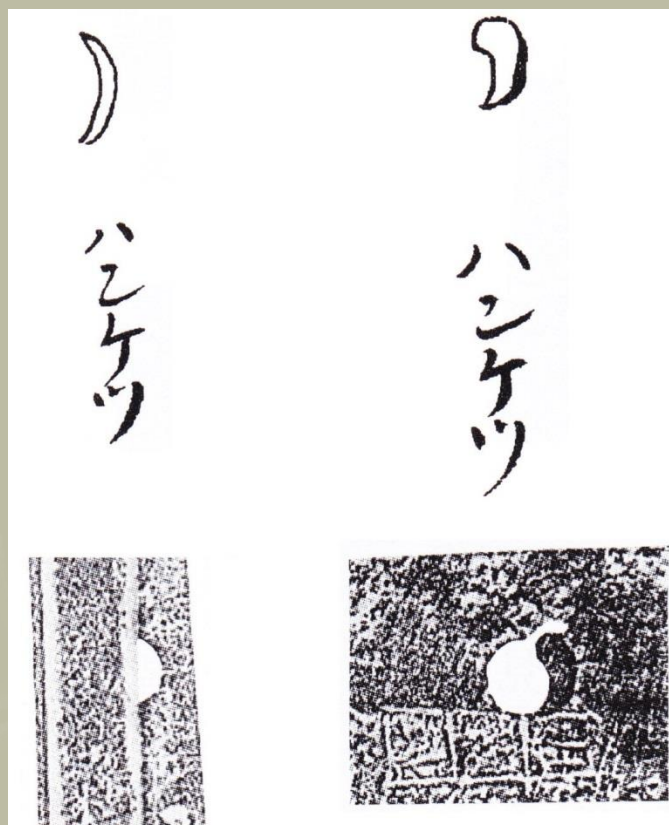 ハンケツ
ハンケツ